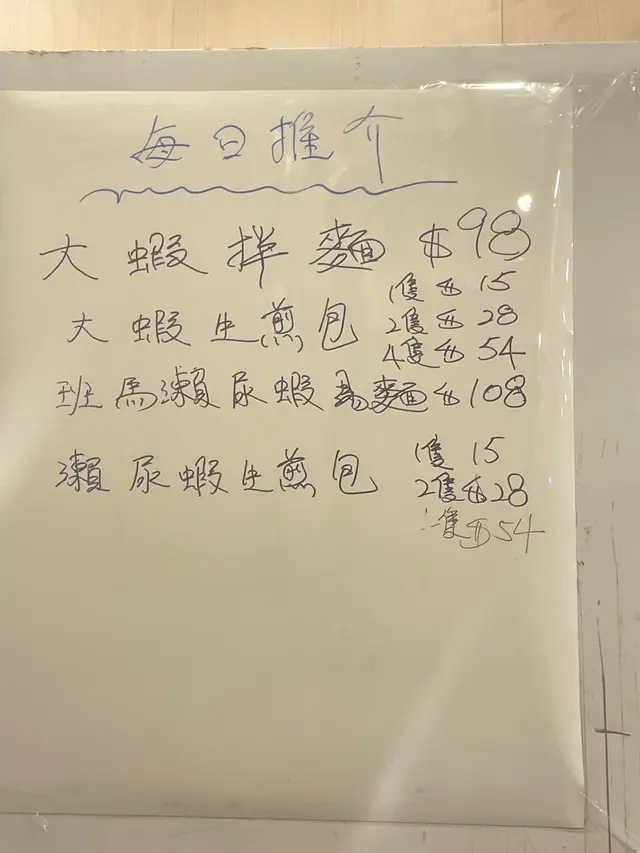 每日推介
大蝦拌麵 $98
大蝦生煎包 1隻 $ 15
2隻 $ 28
4隻 $ 54
班馬瀨尿蝦麵 $ 108
瀨尿蝦生煎包 1隻 15
2隻 $ 28
隻 $ 54